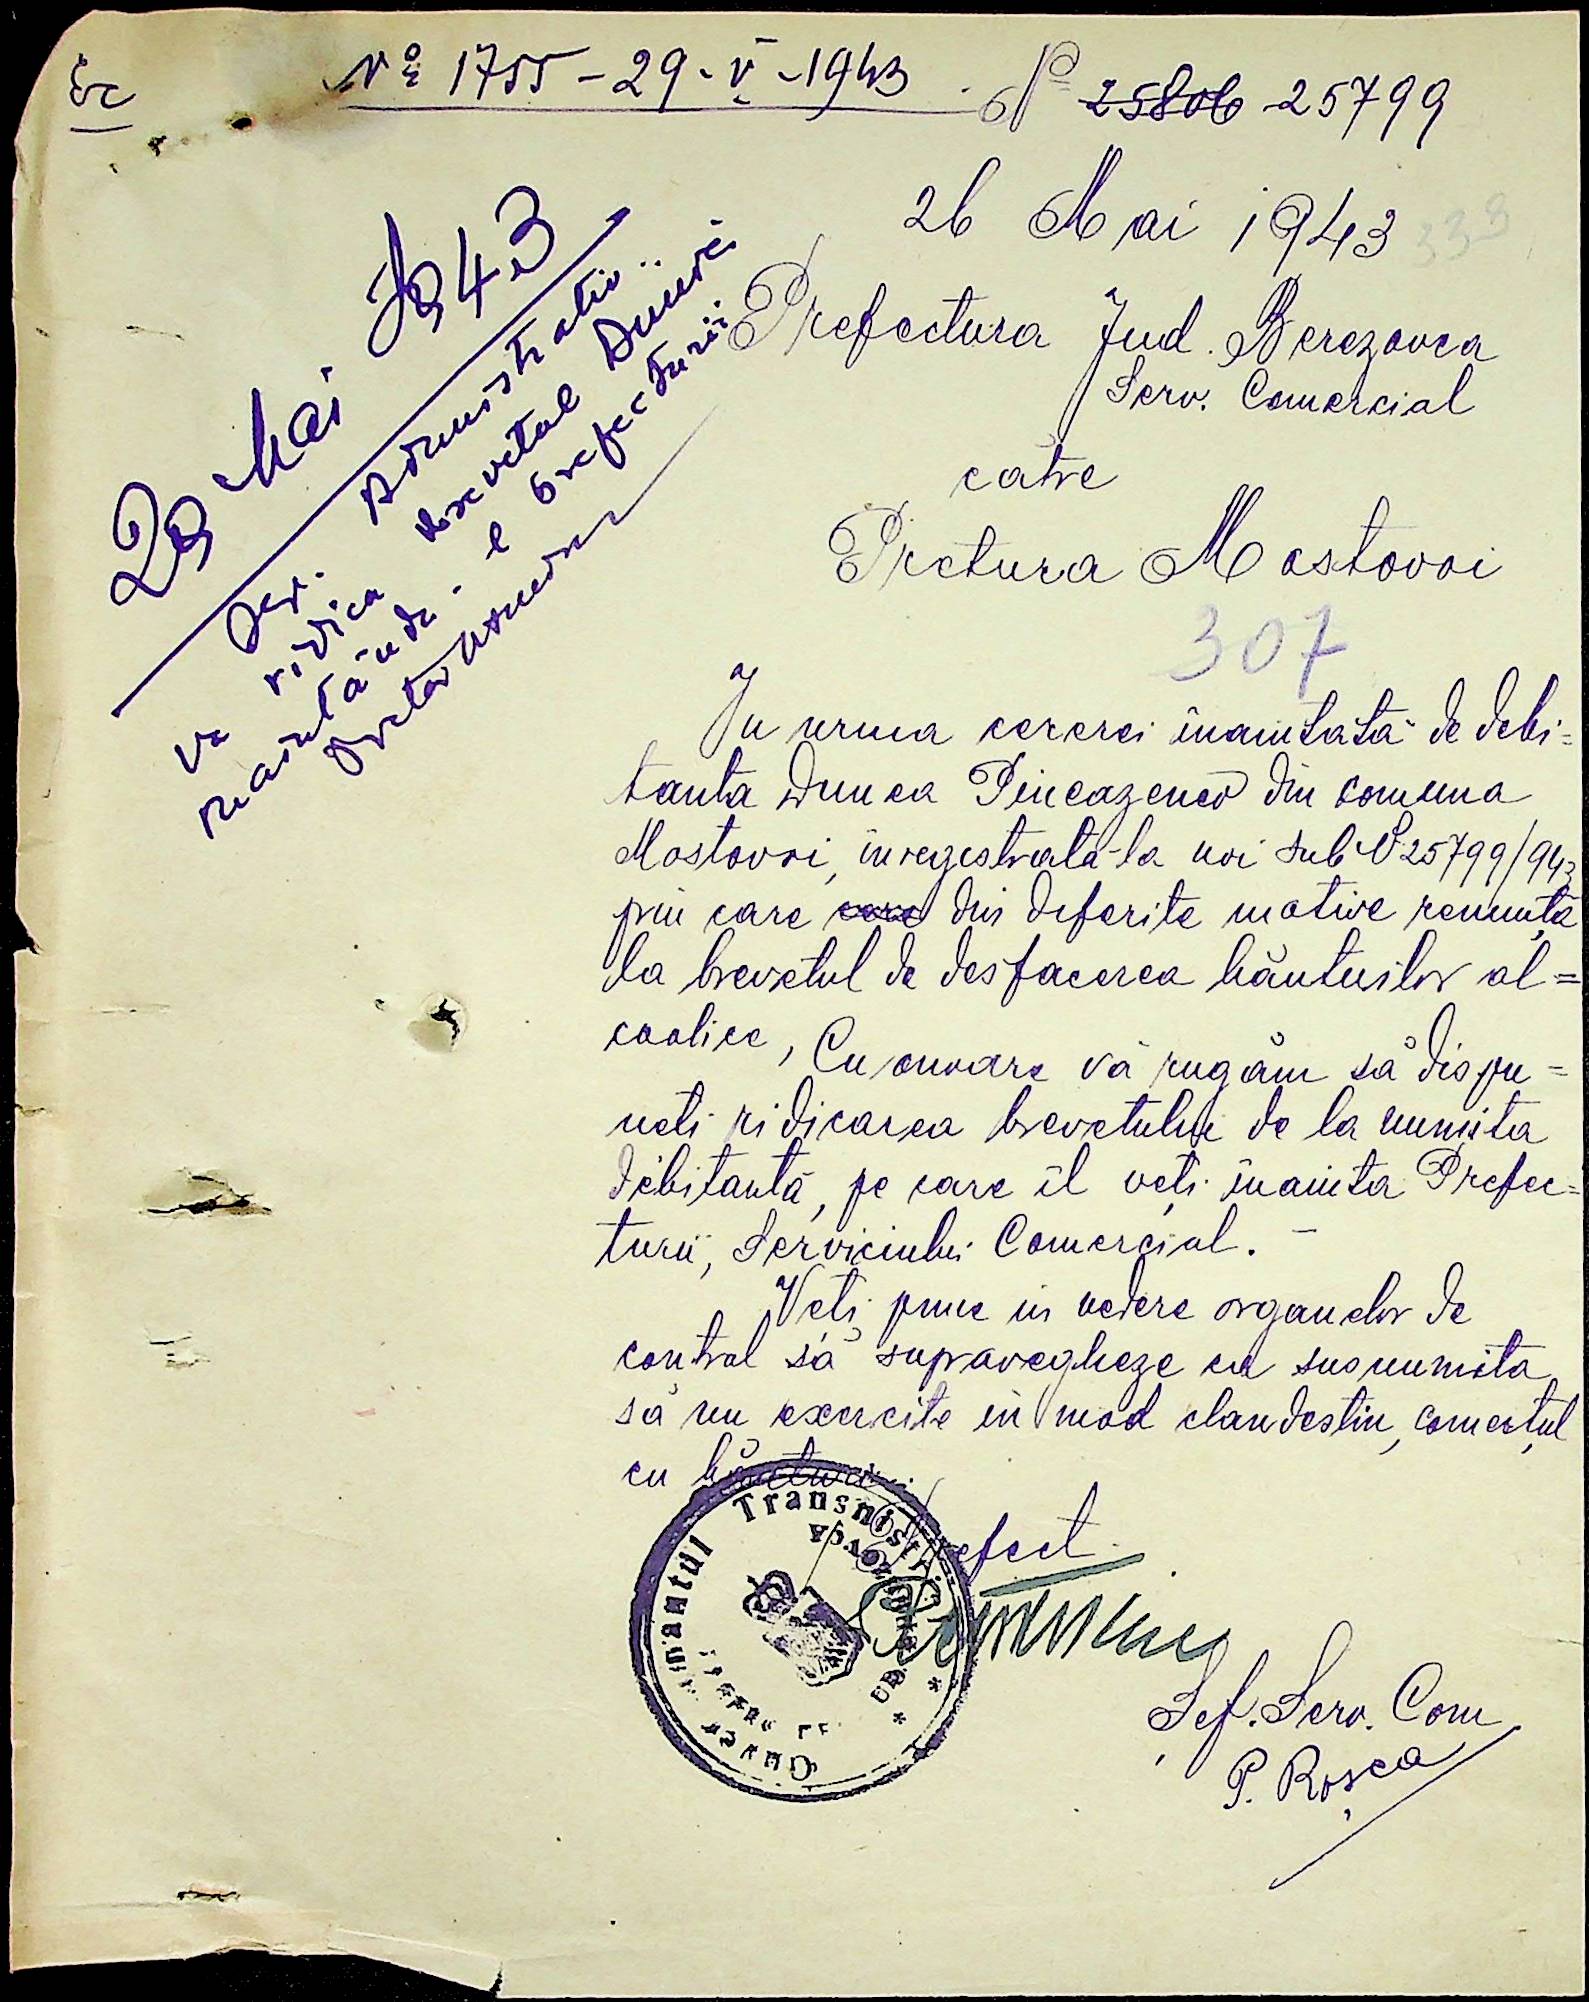 № 1755 - 29 - V - 1943
№ 25806 - 25799
26 Mai 1943
333
Prefectura Jud. Berezovca
Serv. Comercial
catre
Pretura Mostovoi
307
29 Mai 1943
Ser. Administrativ
va ridica brevetul Dunei
înaintându-l prefecturii
Pretor
In urma cererei înaintată de debi=
tanta Dunea Pincazenco din comuna
Mostovoi, inregistrata la noi sub № 25799/943
prin care care din diferite motive renunță
la brevetul de desfacerea băuturilor al=
coolice, Cu onoare vă rugăm să dispu=
neti ridicarea brevetului de la numita
debitantă, pe care îl veți inainta Prefec=
turii, Serviciului Comercial. -
Veți pune in vedere organelor de
control să supravegheze ca susnumita
să nu exercite in mod clandestin, comerțul
cu băuturi.
Prefect
Guvernamantul Transnistriei
Șef. Serv. Com
P. Roșca